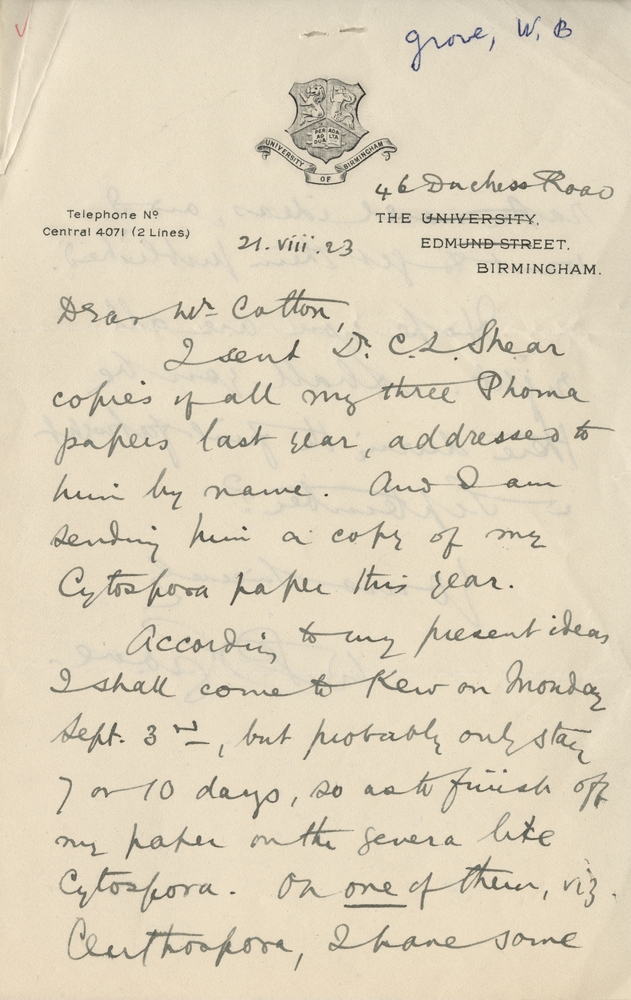 Grove, W. B
PER ARDUA AD ALTA
UNIVERSITY OF BIRMINGHAM
46 Duchess Road
Telephone No
Central 4071 (2 Lines)
THE UNIVERSITY,
21. viii. 23
EDMUND STREET,
BIRMINGHAM.
Dear Mr Cotton,
I sent Dr. C. L. Shear
copies of all my three Phoma
papers last year, addressed to
him by name. And I am
sending him a copy of my
Cytospora paper this year.
According to my present ideas
I shall come to Kew on Monday
Sept. 3rd, but probably only stay
7 or 10 days, so as to finish off
my paper on the genera like
Cytospora. On one of them, viz.
Ceuthospora, I have some